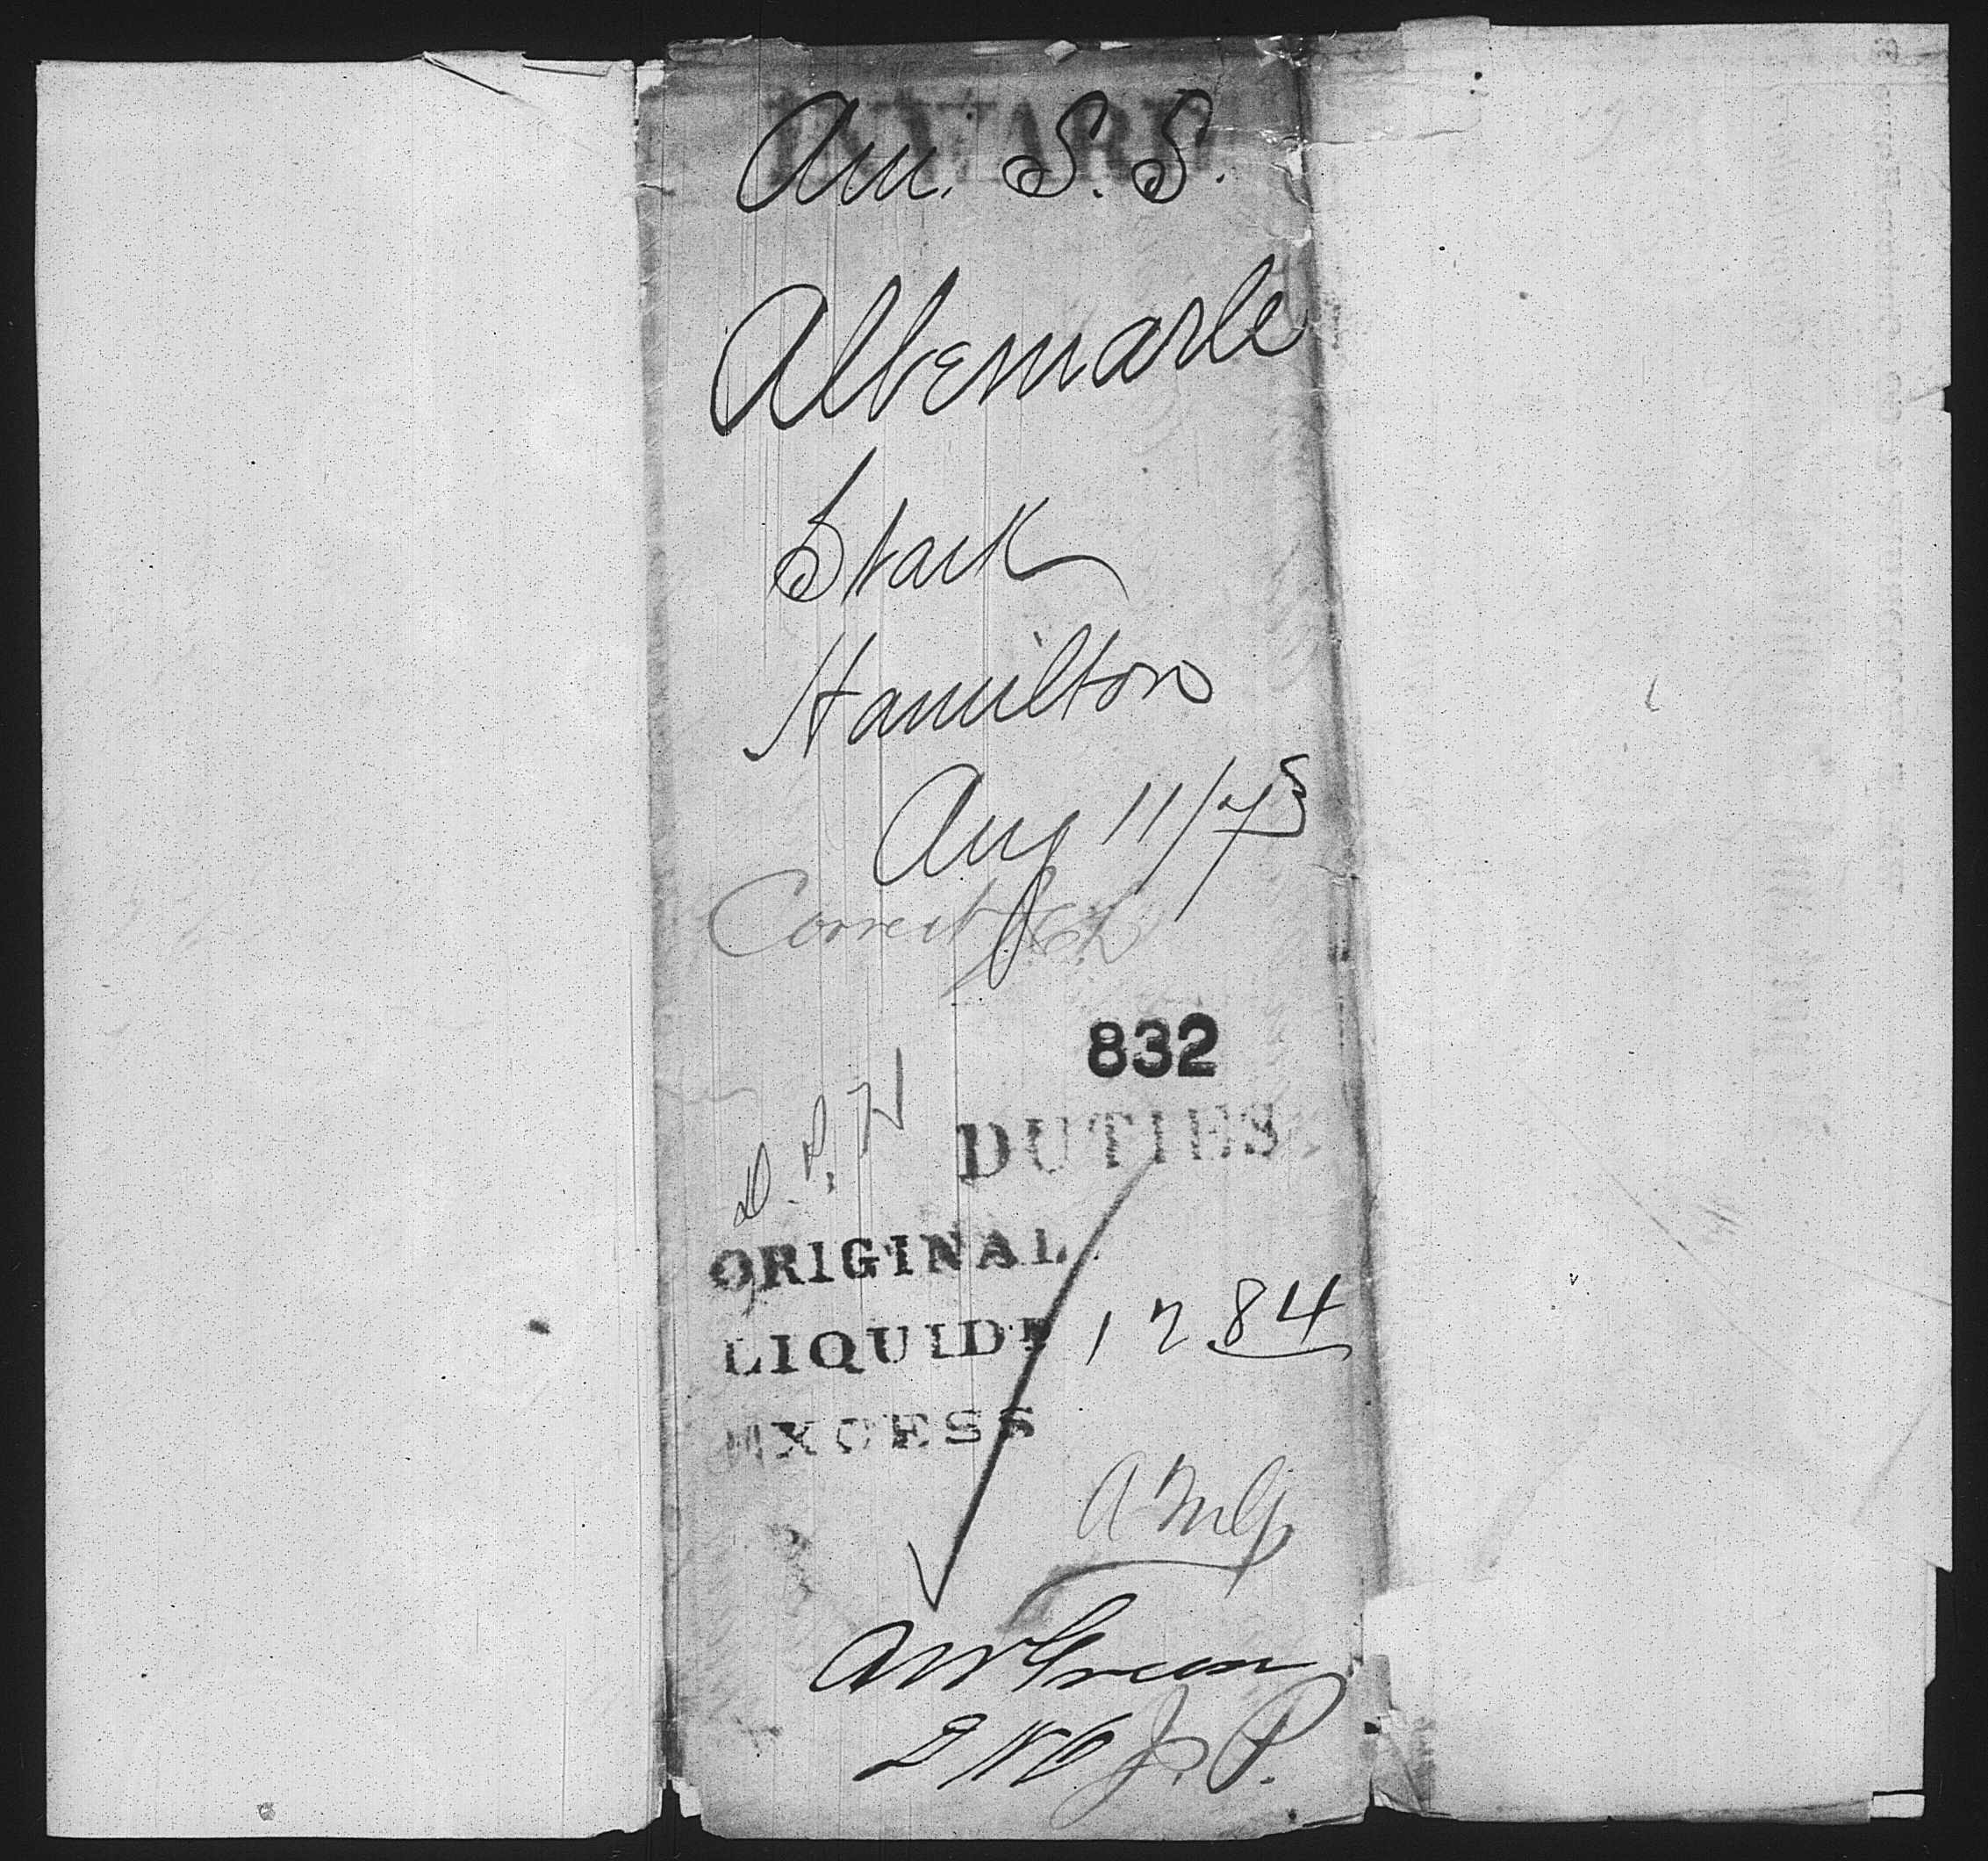 INWARD
Am. S. S.
Albemarle
Stark
Hamilton
Aug 11/75
Correct
832
D. P. H
DUTIES
ORIGINAL
LIQUID
1284
EXCESS
Green
J. P.